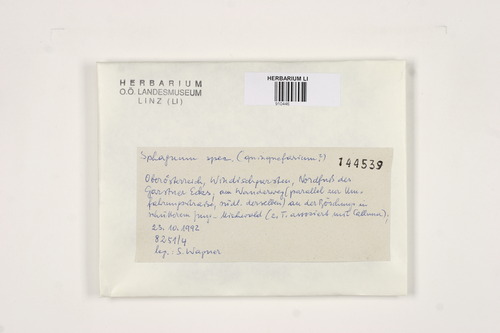 HERBARIUM
O.Ö. LANDESMUSEUM
LINZ (LI)
HERBARIUM LI
Sphagnum spec. (quinquefarium?)
144539
Oberösterreich, Windischgarsten, Nordfuß des
Garstner Ecks, am Wanderweg (parallel zur Um-
fahrungsstraße, südl. derselben) an der Böschung in
schütterem jung. Mischwald (z.T. assoziiert mit Calluna).
23.10.1992
8251/4
leg.: S. Wagner